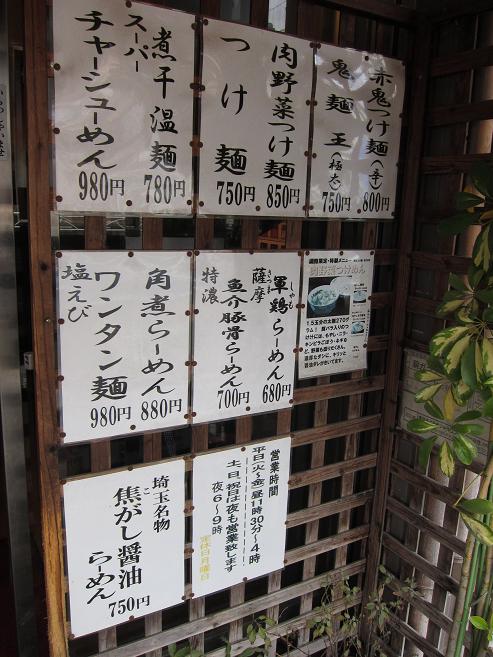 赤鬼つけ麺(辛)
800円
鬼麺王(極太)
750円
肉野菜つけ麺
850円
つけ麺
750円
煮干温麺
780円
スーパー
チャーシューめん
980円
限定
肉野菜つけめん
1.5玉分の太麺270グ
ラム!
軍鶏らーめん
しゃも
薩摩
さつま
680円
特濃
魚介豚骨らーめん
700円
角煮らーめん
880円
塩えび
ワンタン麺
980円
営業時間
平日(火〜金)昼11時30分〜4時
土、日祝日は夜も営業致します
夜6〜9時
定休日月曜日
埼玉名物
焦がし醤油
こ
らーめん
750円